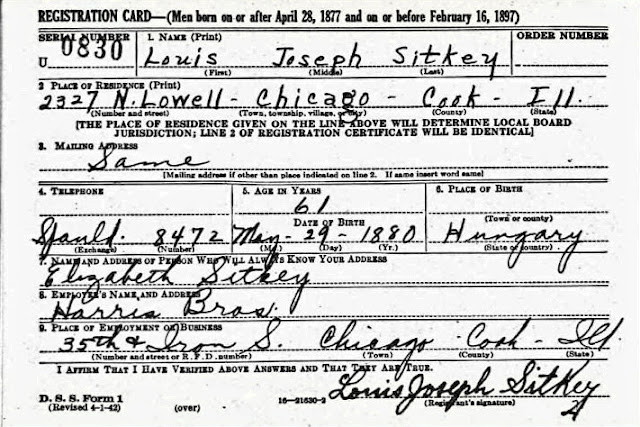 REGISTRATION CARD—(Men born on or after April 28, 1877 and on or before February 16, 1897)
SERIAL NUMBER 1. NAME (Print) ORDER NUMBER
U 0830 Louis Joseph Sitkey
(First) (Middle) (Last)
2 PLACE OF RESIDENCE (Print)
2327 N. Lowell - Chicago - Cook - Ill
(Number and street) (Town, township, village, or city) (County) (State)
[THE PLACE OF RESIDENCE GIVEN ON THE LINE ABOVE WILL DETERMINE LOCAL BOARD
JURISDICTION; LINE 2 OF REGISTRATION CERTIFICATE WILL BE IDENTICAL]
3. MAILING ADDRESS
Same
[Mailing address if other than place indicated on line 2. If same insert word same]
4. TELEPHONE 5. AGE IN YEARS 6. PLACE OF BIRTH
61
DATE OF BIRTH (Town or county)
Spauld. 8472 May - 29 - 1880 Hungary
(Exchange) (Number) (Mo.) (Day) (Yr.) (State or country)
7. NAME AND ADDRESS OF PERSON WHO WILL ALWAYS KNOW YOUR ADDRESS
Elizabeth Sitkey
8. EMPLOYER'S NAME AND ADDRESS
Harris Bros.
9. PLACE OF EMPLOYMENT OR BUSINESS
35th & Iron S. Chicago Cook - Ill.
(Number and street or R. F. D. number) (Town) (County) (State)
I AFFIRM THAT I HAVE VERIFIED ABOVE ANSWERS AND THAT THEY ARE TRUE.
Louis Joseph Sitkey
D. S. S. Form 1
(Revised 4-1-42) (over) 16—21630-2 (Registrant's signature)